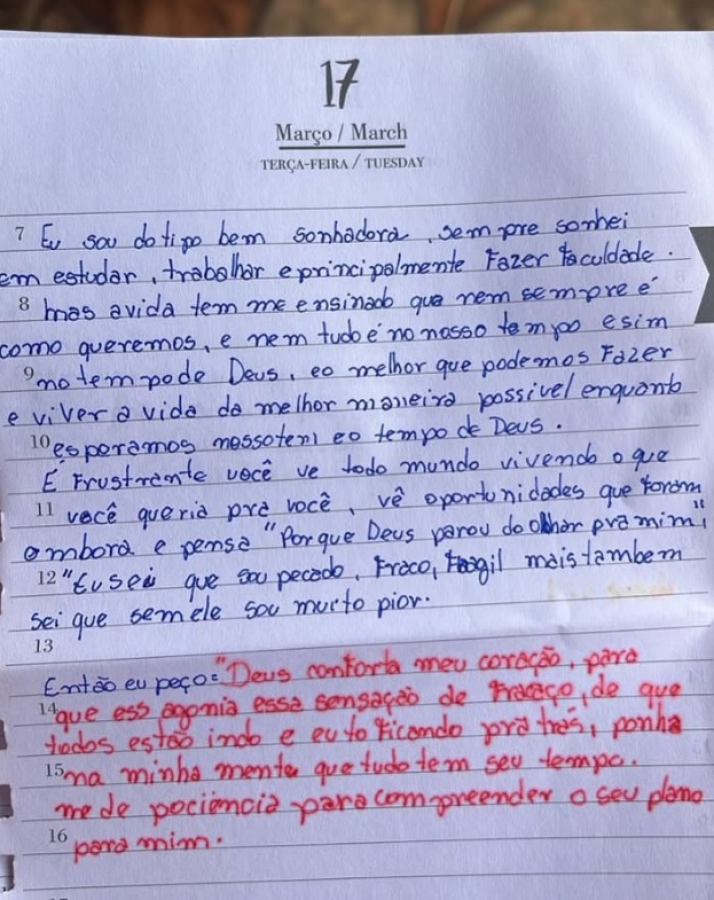 17
Março / March
TERÇA-FEIRA / TUESDAY
7 Eu sou do tipo bem sonhadora, sempre sonhei
em estudar, trabalhar e principalmente Fazer faculdade.
8 mas a vida tem me ensinado que nem sempre é
como queremos, e nem tudo é no nosso tempo e sim
9 no tempo de Deus, e o melhor que podemos Fazer
e viver a vida da melhor maneira possivel enquanto
10 esperamos nosso tem e o tempo de Deus.
É Frustrante você ve todo mundo vivendo o que
11 você queria pra você, vê oportunidades que foram
ambora e pensa "Porque Deus parou de olhar pra mim",
12 "Eu sei que sou pecado, Fraco, Fragil mais tambem
sei que sem ele sou muito pior.
13
Então eu peço: "Deus conforta meu coração, para
14 que ess agonia essa sensação de Fracaço, de que
todos estão indo e eu to Ficando pra trás, ponha
15 na minha mente que tudo tem seu tempo.
me de paciencia para compreender o seu plano
16 para mim.